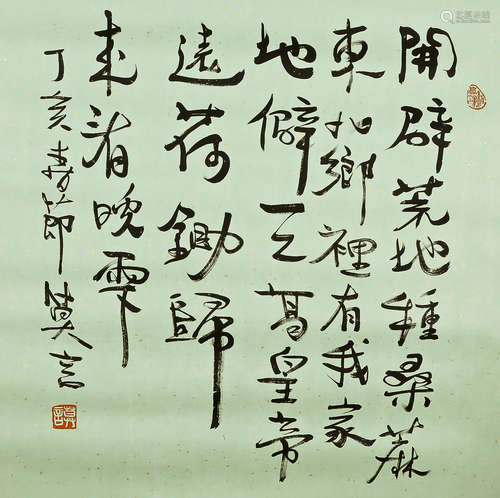 開辟荒地種桑麻
東北鄉裡有我家
地僻天高皇帝
遠荷鋤歸
來看晚霞
丁亥春節莫言
莫言